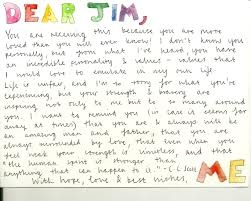 DEAR JIM,
You are receiving this, because you are more
loved than you will ever know! I don't know you
personally but from what I've heard, you have
an incredible personality & values - values that
I would love to emulate in my own life.
Life is unfair, and I'm so sorry for what you're
experiencing but your strength & bravery are
inspiring, not only to me but to so many around
you. I want to remind you (in case it seems far
away at times) that you are & always will be
an amazing man and father, that you are
always surrounded by love, that even when you
feel weak your strength is limitless, and that
"The human spirit is stronger than
anything that can happen to it." - C.C. Scott
With hope, love & best wishes,
ME